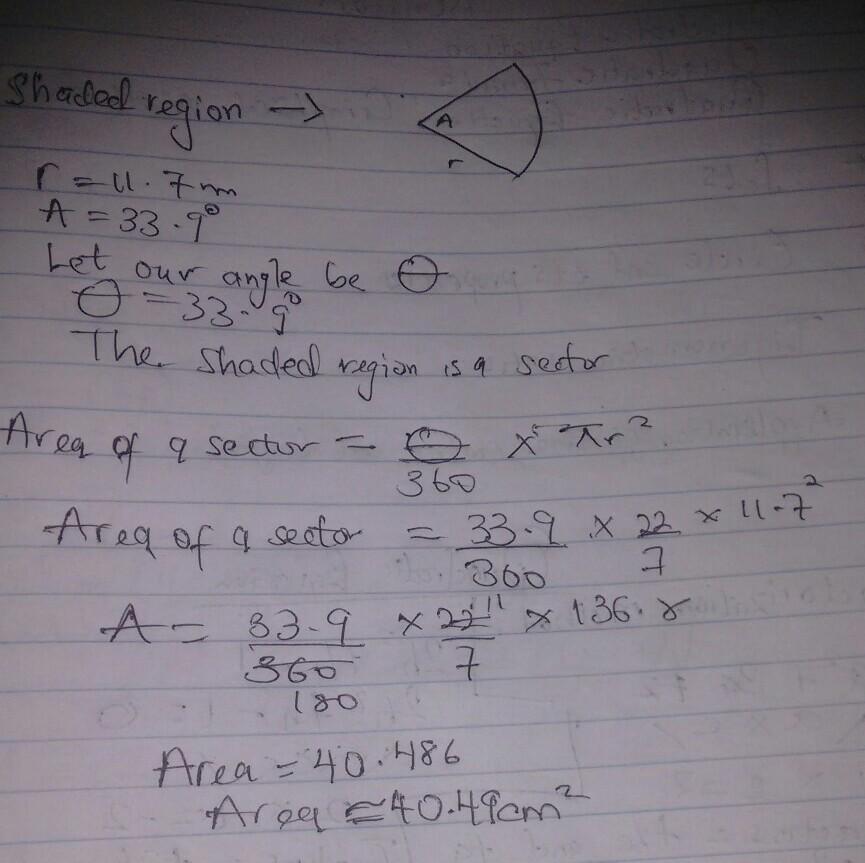 Shaded region →
A
r
r = 11.7 mm
A = 33.9°
Let our angle be θ
θ = 33.9°
The shaded region is a sector
Area of a sector = θ/360 × πr²
Area of a sector = 33.9/360 × 22/7 × 11.7²
A = 33.9/360 × 22/7 × 136.8
11
180
Area = 40.486
Area ≅ 40.49cm²